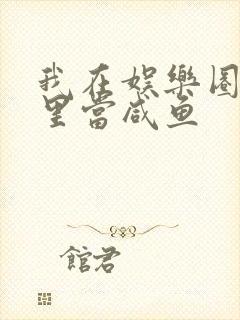 我在娱樂圈
里當咸鱼
館君